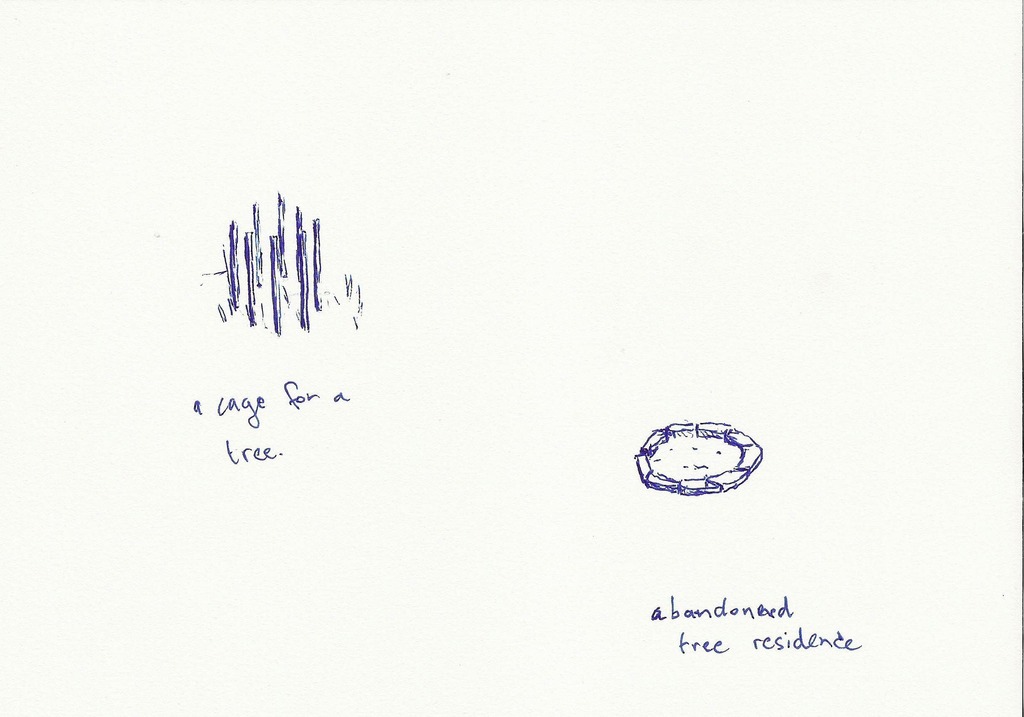 a cage for a
tree.
abandoned
tree residence